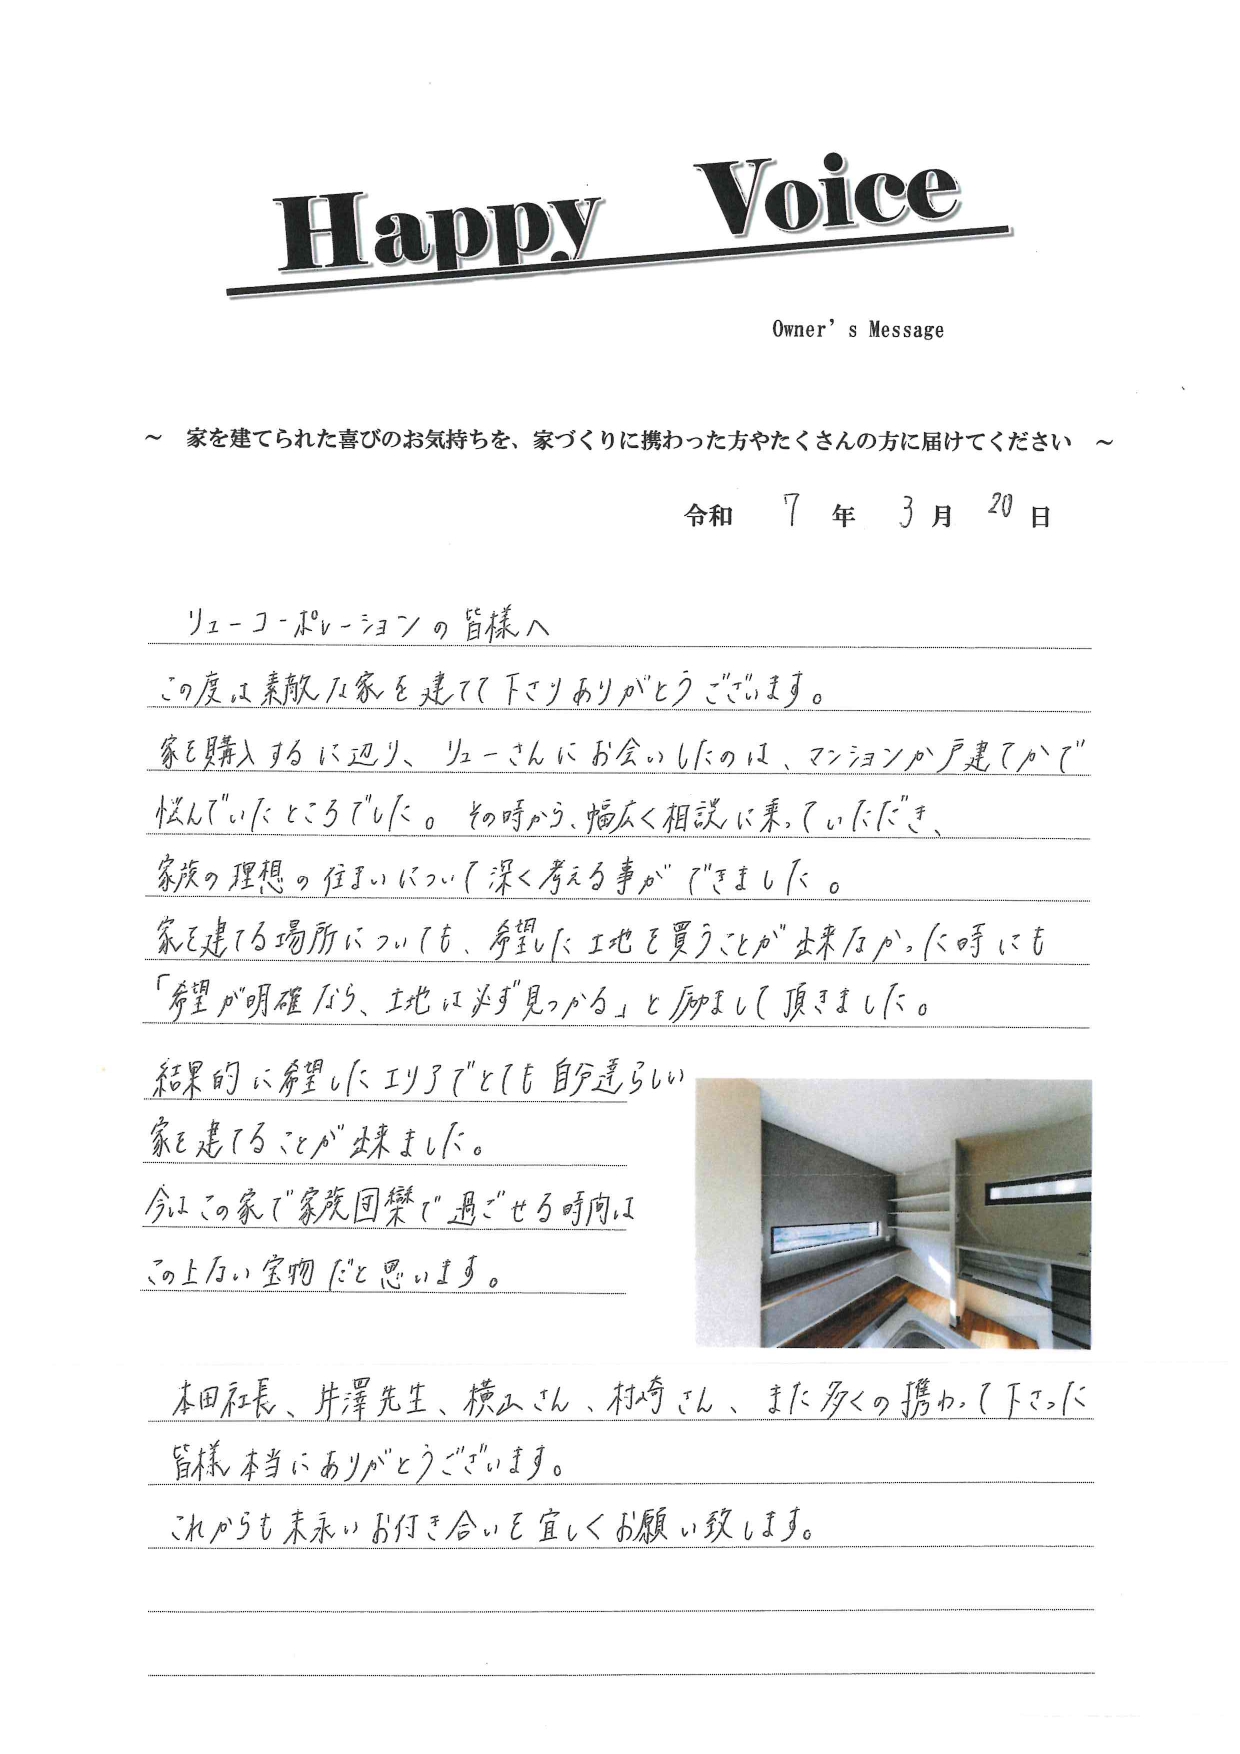 Happy Voice
Owner's Message
～ 家を建てられた喜びのお気持ちを、家づくりに携わった方やたくさんの方に届けてください ～
令和 7 年 3 月 20 日
リューコーポレーションの皆様へ
この度は素敵な家を建てて下さりありがとうございます。
家を購入するに辺り、リューさんにお会いしたのは、マンションか戸建てかで
悩んでいたところでした。その時から、幅広く相談に乗っていただき、
家族の理想の住まいについて深く考える事ができました。
家を建てる場所についても、希望した土地を買うことが出来なかった時にも
「希望が明確なら、土地は必ず見つかる」と励まして頂きました。
結果的に希望したエリアでとても自分達らしい
家を建てることが出来ました。
今はこの家で家族団欒で過ごせる時間は
この上ない宝物だと思います。
本田社長、片澤先生、横山さん、村崎さん、また多くの携わって下さった
皆様本当にありがとうございます。
これからも末永いお付き合いを宜しくお願い致します。